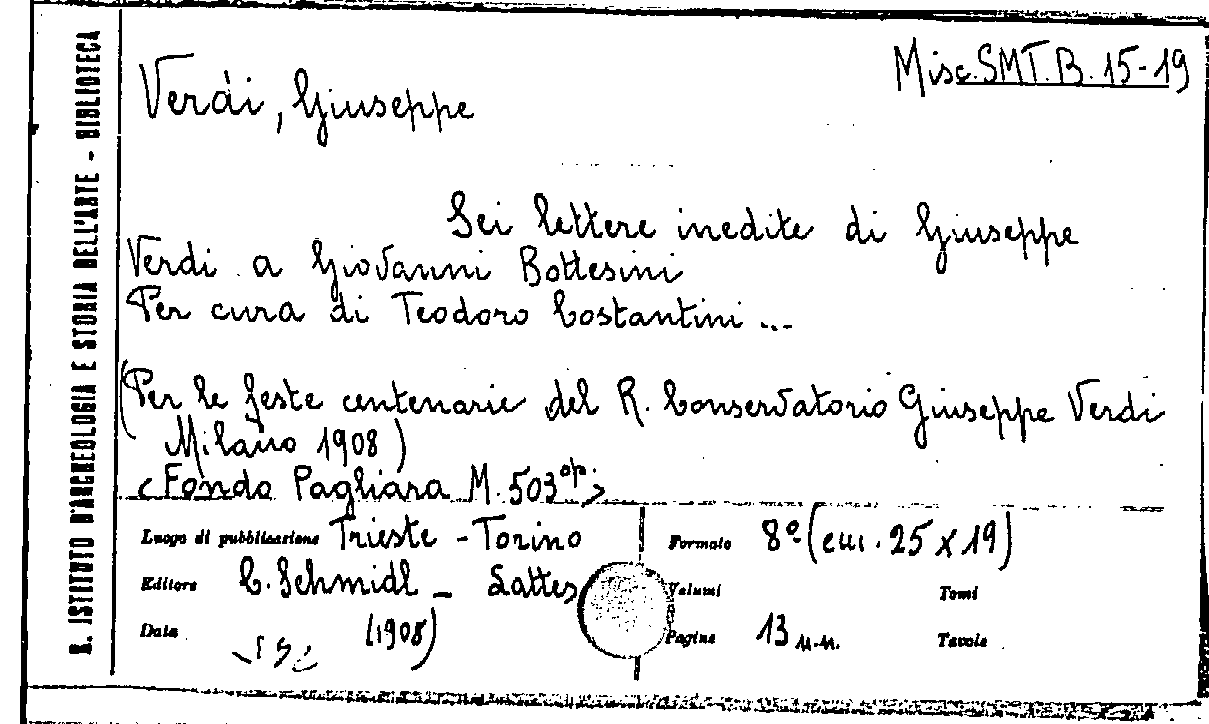 R. ISTITUTO D'ARCHEOLOGIA E STORIA DELL'ARTE - BIBLIOTECA
Misc. SMT. B. 15-19
Verdi, Giuseppe
Sei lettere inedite di Giuseppe
Verdi a Giovanni Bottesini
Per cura di Teodoro Costantini ...
(Per le feste centenarie del R. Conservatorio Giuseppe Verdi
Milano 1908)
<Fondo Pagliara M. 503 op.>
Luogo di pubblicazione Trieste - Torino
Formato 8º (cm. 25 x 19)
Editore C. Schmidl - Lattes
Volumi Tomi
Data (1908)
Pagine 13 n.n. Tavole